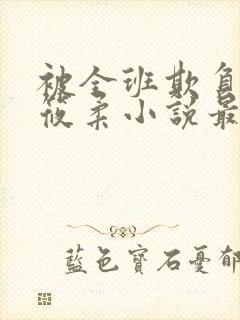 被全班欺負
筱柔小說最
藍色寶石憂郁